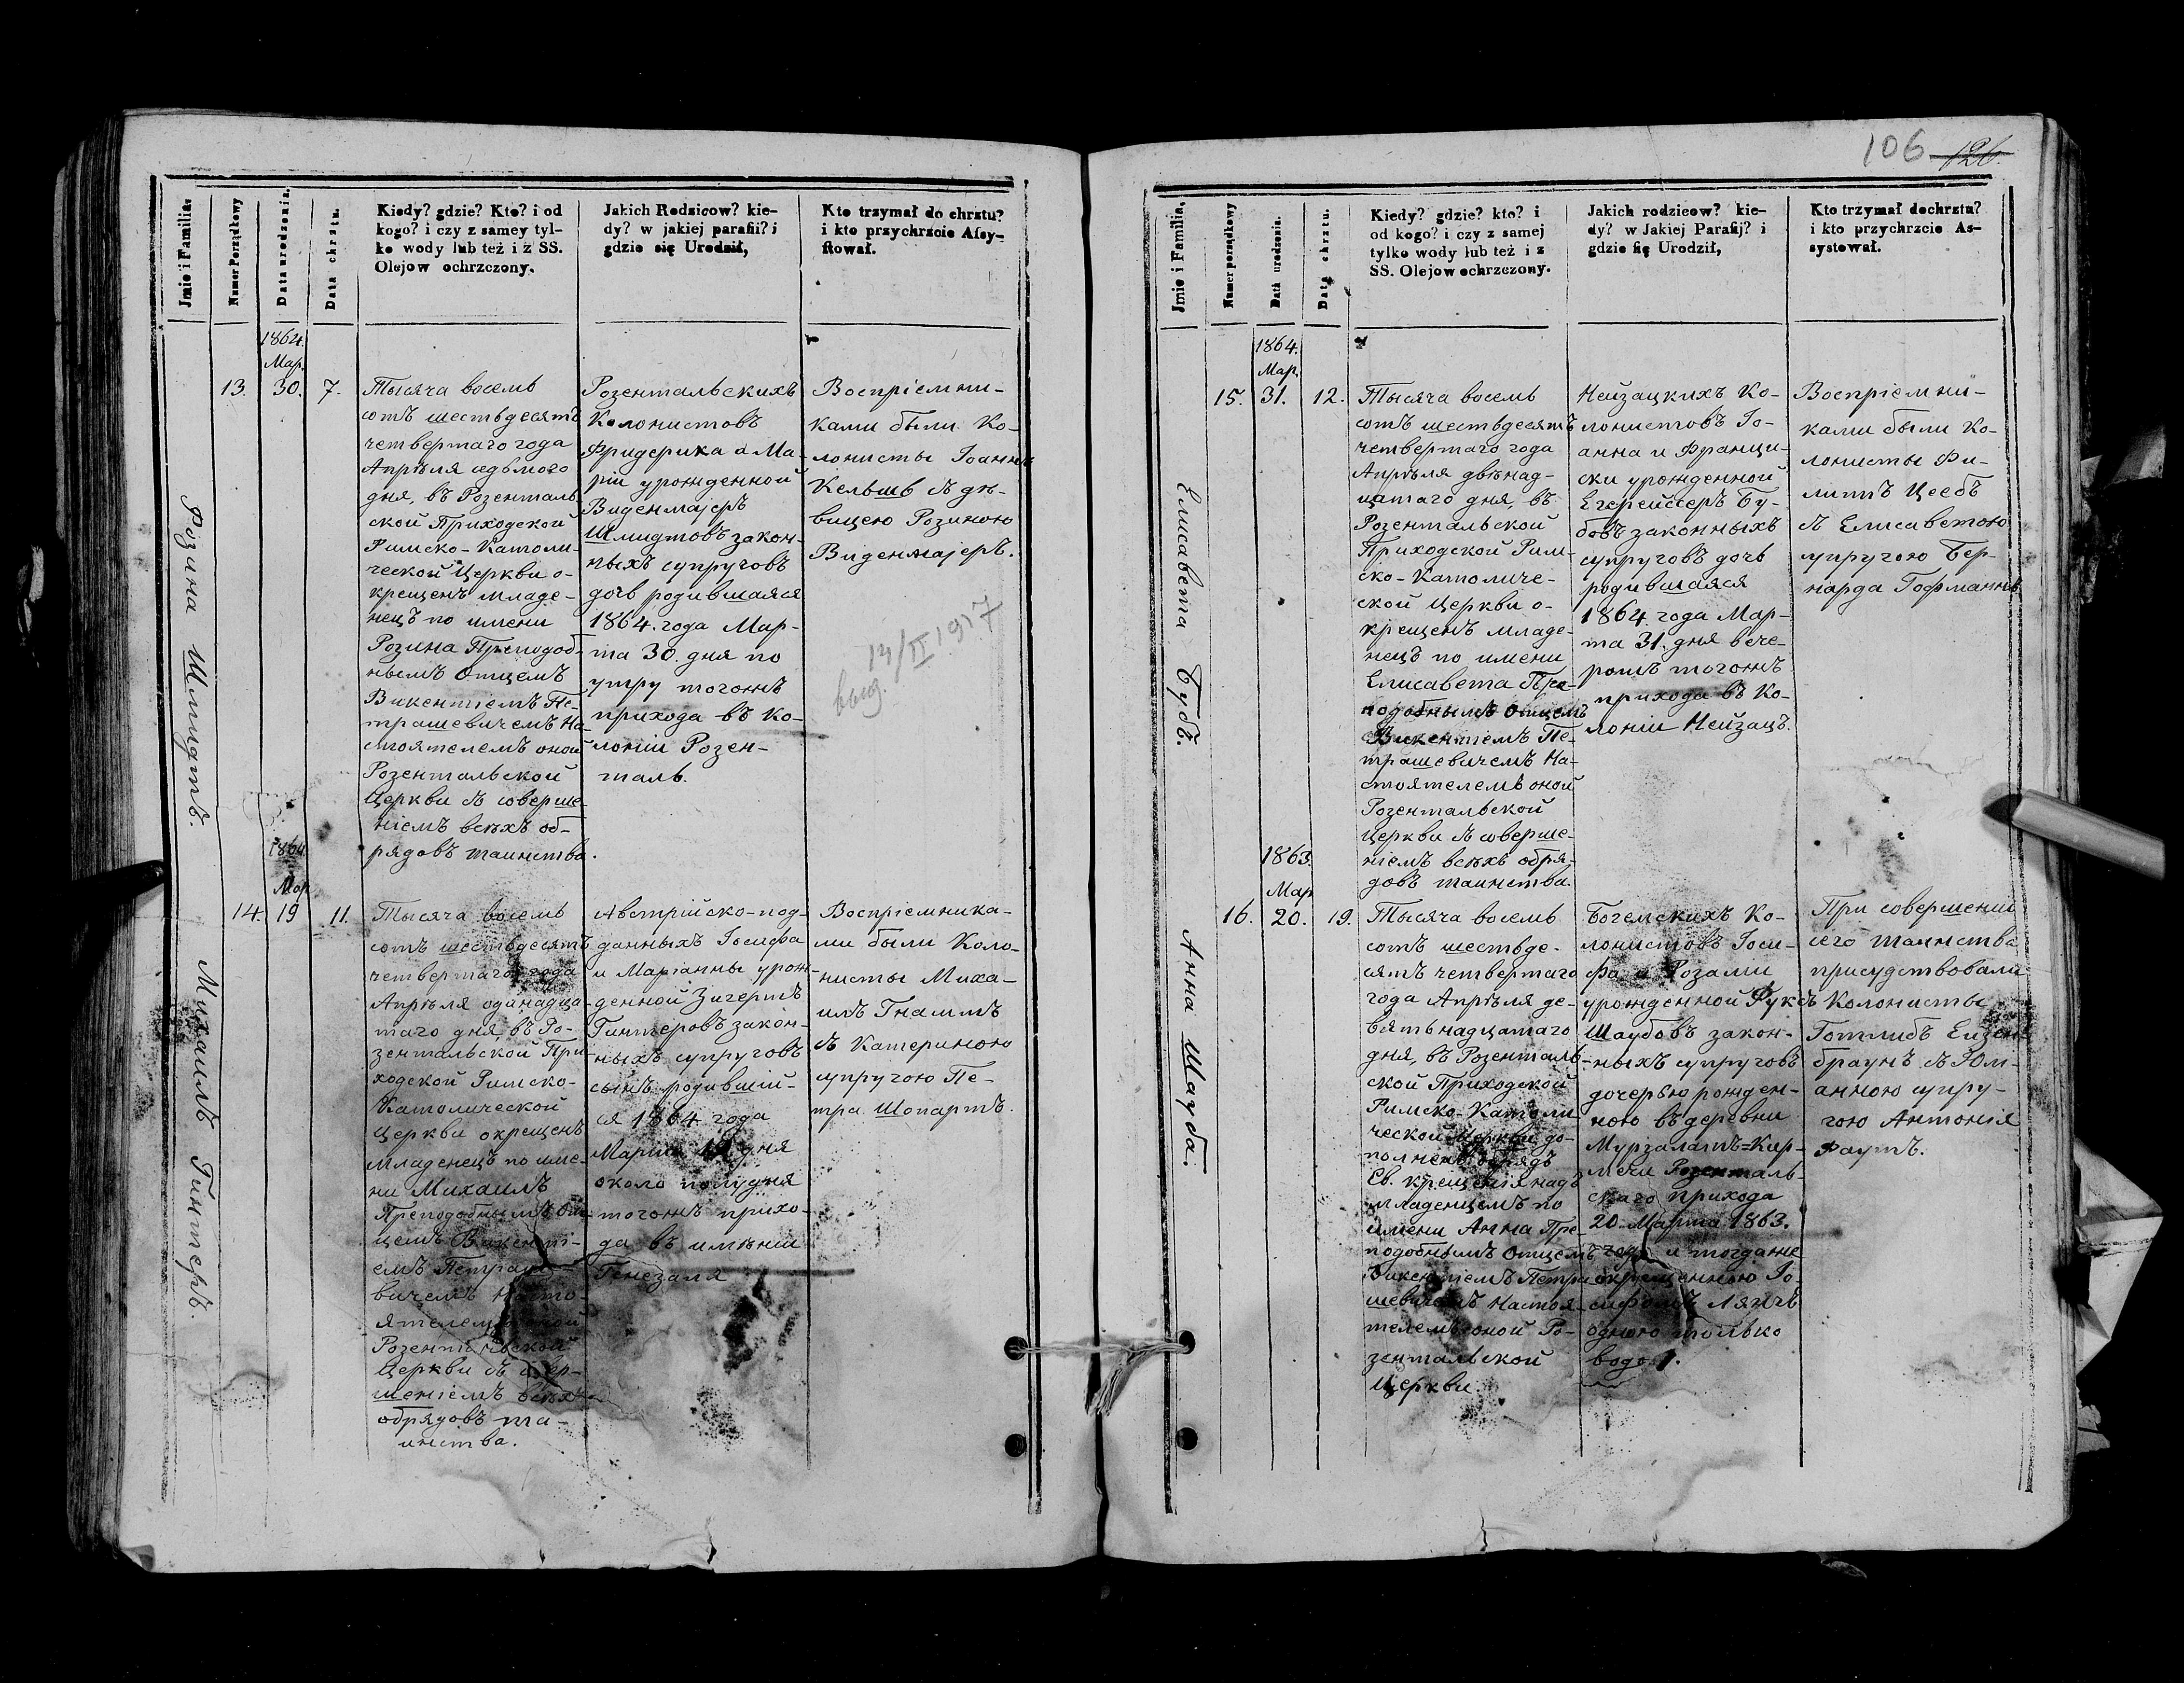 106 126.
Jmie i Familia.
Numer Porządkowy
Data urodzenia.
Data chrztu.
Kiedy? gdzie? Kto? i od
kogo? i czy z samey tyl-
ko wody lub też i z SS.
Olejow ochrzczony.
Jakich Rodzicow? kie-
dy? w jakiej parafii? i
gdzie się Urodził,
Kto trzymał do chrztu?
i kto przychrzcie Assy-
stował.
Розина Шмидтъ.
1864.
Мар.
13. 30. 7.
Тысяча восемь
сотъ шестьдесятъ
четвертаго года
Апрѣля седьмого
дня, въ Розенталь-
ской Приходской
Римско-Католи-
ческой Церкви о-
крещенъ младе-
нецъ по имени
Розина Преподоб-
нымъ Отцемъ
Викентіемъ Пе-
трашевичемъ На-
стоятелемъ оной
Розентальской
Церкви съ соверше-
ніемъ всѣхъ об-
рядовъ таинства.
Розентальскихъ
Колонистовъ
Фридерика и Ма-
ріи урожденной
Виденмајеръ
Шмидтовъ закон-
ныхъ супруговъ
дочь родившаяся
1864. года Мар-
та 30. дня по
утру тогожъ
прихода въ Ко-
лоніи Розен-
таль.
Воспріемни-
ками были Ко-
лонисты Іоаннъ
Кельшъ съ дѣ-
вицею Розиною
Виденмајеръ.
выд. 14/II 1917
Михаилъ Гинтеръ.
1864
Мар
14. 19 11.
Тысяча восемь
сотъ шестьдесятъ
четвертаго года
Апрѣля одинадца-
таго дня, въ Ро-
зентальской При-
ходской Римско-
Католической
Церкви окрещенъ
младенецъ по име-
ни Михаилъ
Преподобнымъ От-
цемъ Викенті-
емъ Петраше-
вичемъ Насто-
ятелемъ оной
Розентальской
Церкви съ совер-
шеніемъ всѣхъ
обрядовъ та-
инства.
Австрійско-под-
данныхъ Іосифа
и Маріанны урож-
денной Зигертъ
Гинтеровъ закон-
ныхъ супруговъ
сынъ родившій-
ся 1864 года
Марта 19 дня
около полудня
тогожъ прихо-
да въ имѣніи
Генезаля
Воспріемника-
ми были Коло-
нисты Миха-
илъ Гнаммъ
съ Катериною
супругою Пе-
тра Шопартъ.
Jmie i Familia.
Numer porządkowy
Data urodzenia.
Data chrztu.
Kiedy? gdzie? kto? i
od kogo? i czy z samej
tylko wody lub też i z
SS. Olejow ochrzczony.
Jakich rodzicow? kie-
dy? w Jakiej Parafij? i
gdzie się Urodził,
Kto trzymał dochrztu?
i kto przychrzcie As-
systował.
Елисавета Бубъ.
1864.
Мар.
15. 31. 12.
Тысяча восемь
сотъ шестьдесятъ
четвертаго года
Апрѣля двѣнад-
цатаго дня, въ
Розентальской
Приходской Рим-
ско-Католиче-
ской Церкви о-
крещенъ младе-
нецъ по имени
Елисавета Пре-
подобнымъ Отцемъ
Викентіемъ Пе-
трашевичемъ На-
стоятелемъ оной
Розентальской
Церкви съ соверше-
ніемъ всѣхъ обря-
довъ таинства.
Нейзацкихъ Ко-
лонистовъ Іо-
анна и Франци-
ски урожденной
Егерейсеръ Бу-
бовъ законныхъ
супруговъ дочь
родившаяся
1864 года Мар-
та 31. дня вече-
ромъ тогожъ
прихода въ Ко-
лоніи Нейзацъ.
Воспріемни-
ками были Ко-
лонисты Фи-
липъ Цеебъ
съ Елисаветою
супругою Бер-
нарда Гофманнъ
Анна Шауба.
1863.
Мар
16. 20. 19.
Тысяча восемь
сотъ шестьде-
сятъ четвертаго
года Апрѣля де-
вятьнадцатаго
дня, въ Розенталь-
ской Приходской
Римско-Католи
ческой Церкви до-
полненъ обрядъ
Св. крещенія надъ
младенцемъ по
имени Анна Пре-
подобнымъ Отцемъ
Викентіемъ Петра
шевичемъ Настоя-
телемъ оной Ро-
зентальской
Церкви.
Богемскихъ Ко-
лонистовъ Іоси-
фа и Розаліи
урожденной Фуксъ
Шаубовъ закон-
ныхъ супруговъ
дочерью рожден-
ною въ деревни
Мурзалатъ=Кир-
мечи Розенталь-
скаго прихода
20 Марта 1863.
года и тогдаже
окрещенною Іо-
сифомъ Лянгъ
одною только
водою.
При совершеніи
сего таинства
присудствовали
Колонисты
Готлибъ Еизен-
браунъ съ Юли-
анною супру-
гою Антонія
Фаутъ.